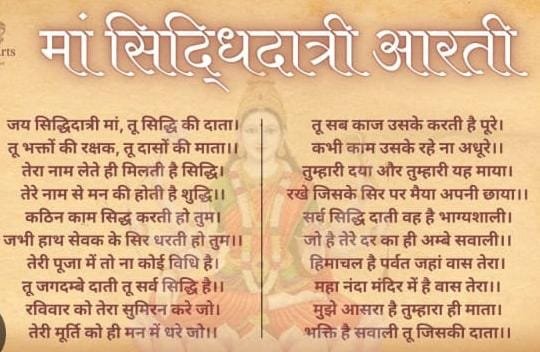 rts
मां सिद्धिदात्री आरती
जय सिद्धिदात्री मां, तू सिद्धि की दाता।
तू भक्तों की रक्षक, तू दासों की माता।।
तेरा नाम लेते ही मिलती है सिद्धि।
तेरे नाम से मन की होती है शुद्धि।।
कठिन काम सिद्ध करती हो तुम।
जभी हाथ सेवक के सिर धरती हो तुम।।
तेरी पूजा में तो ना कोई विधि है।
तू जगदम्बे दाती तू सर्व सिद्धि है।।
रविवार को तेरा सुमिरन करे जो।
तेरी मूर्ति को ही मन में धरे जो।।
तू सब काज उसके करती है पूरे।
कभी काम उसके रहे ना अधूरे।।
तुम्हारी दया और तुम्हारी यह माया।
रखे जिसके सिर पर मैया अपनी छाया।।
सर्व सिद्धि दाती वह है भाग्यशाली।
जो है तेरे दर का ही अम्बे सवाली।।
हिमाचल है पर्वत जहां वास तेरा।
महा नंदा मंदिर में है वास तेरा।।
मुझे आसरा है तुम्हारा ही माता।
भक्ति है सवाली तू जिसकी दाता।।